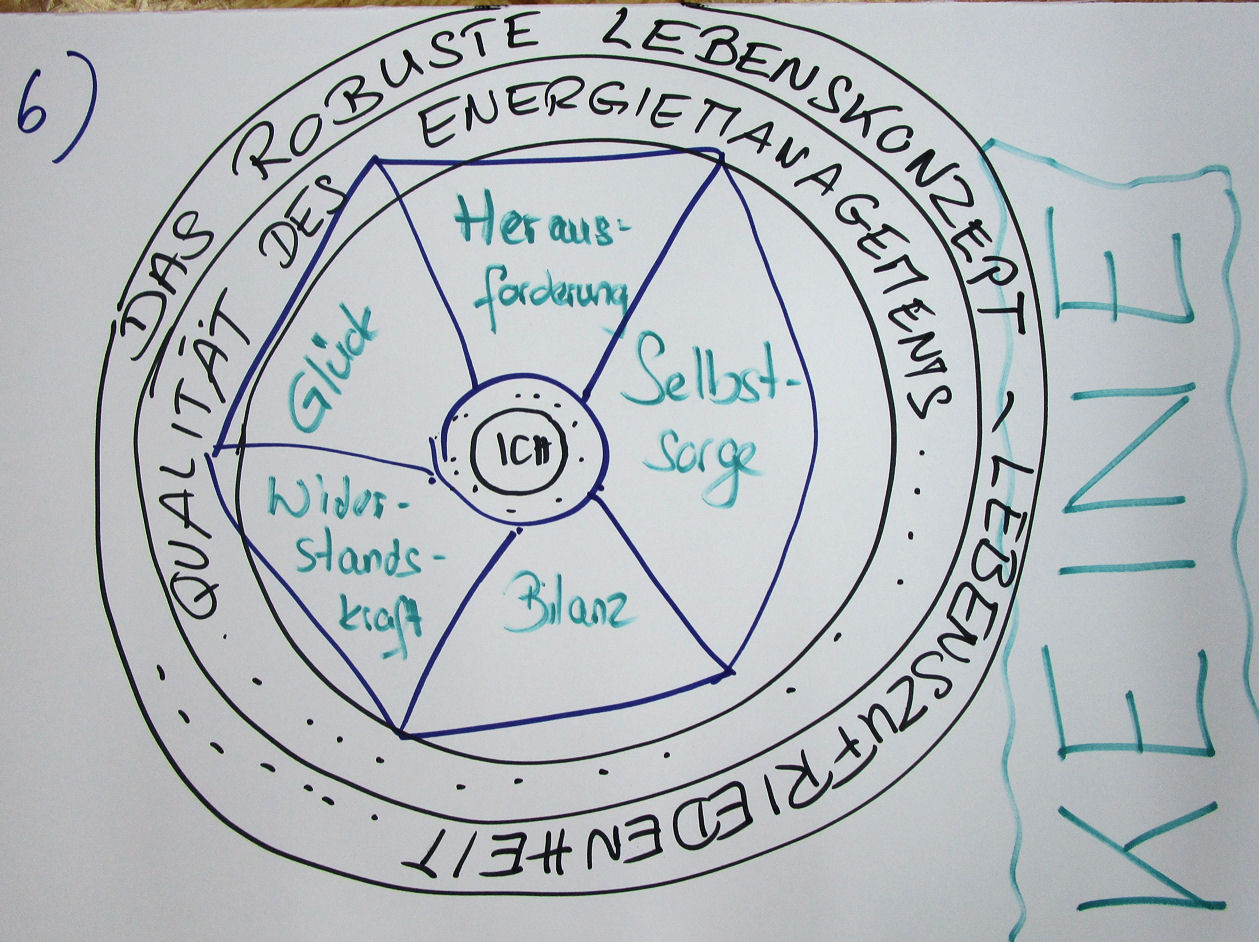 6)
DAS ROBUSTE LEBENSKONZEPT ~ LEBENSZUFRIEDENHEIT
QUALITÄT DES ENERGIEMANAGEMENTS
Heraus-
forderung
Glück
Selbst-
sorge
ICH
Wider-
stands-
kraft
Bilanz
KEINE